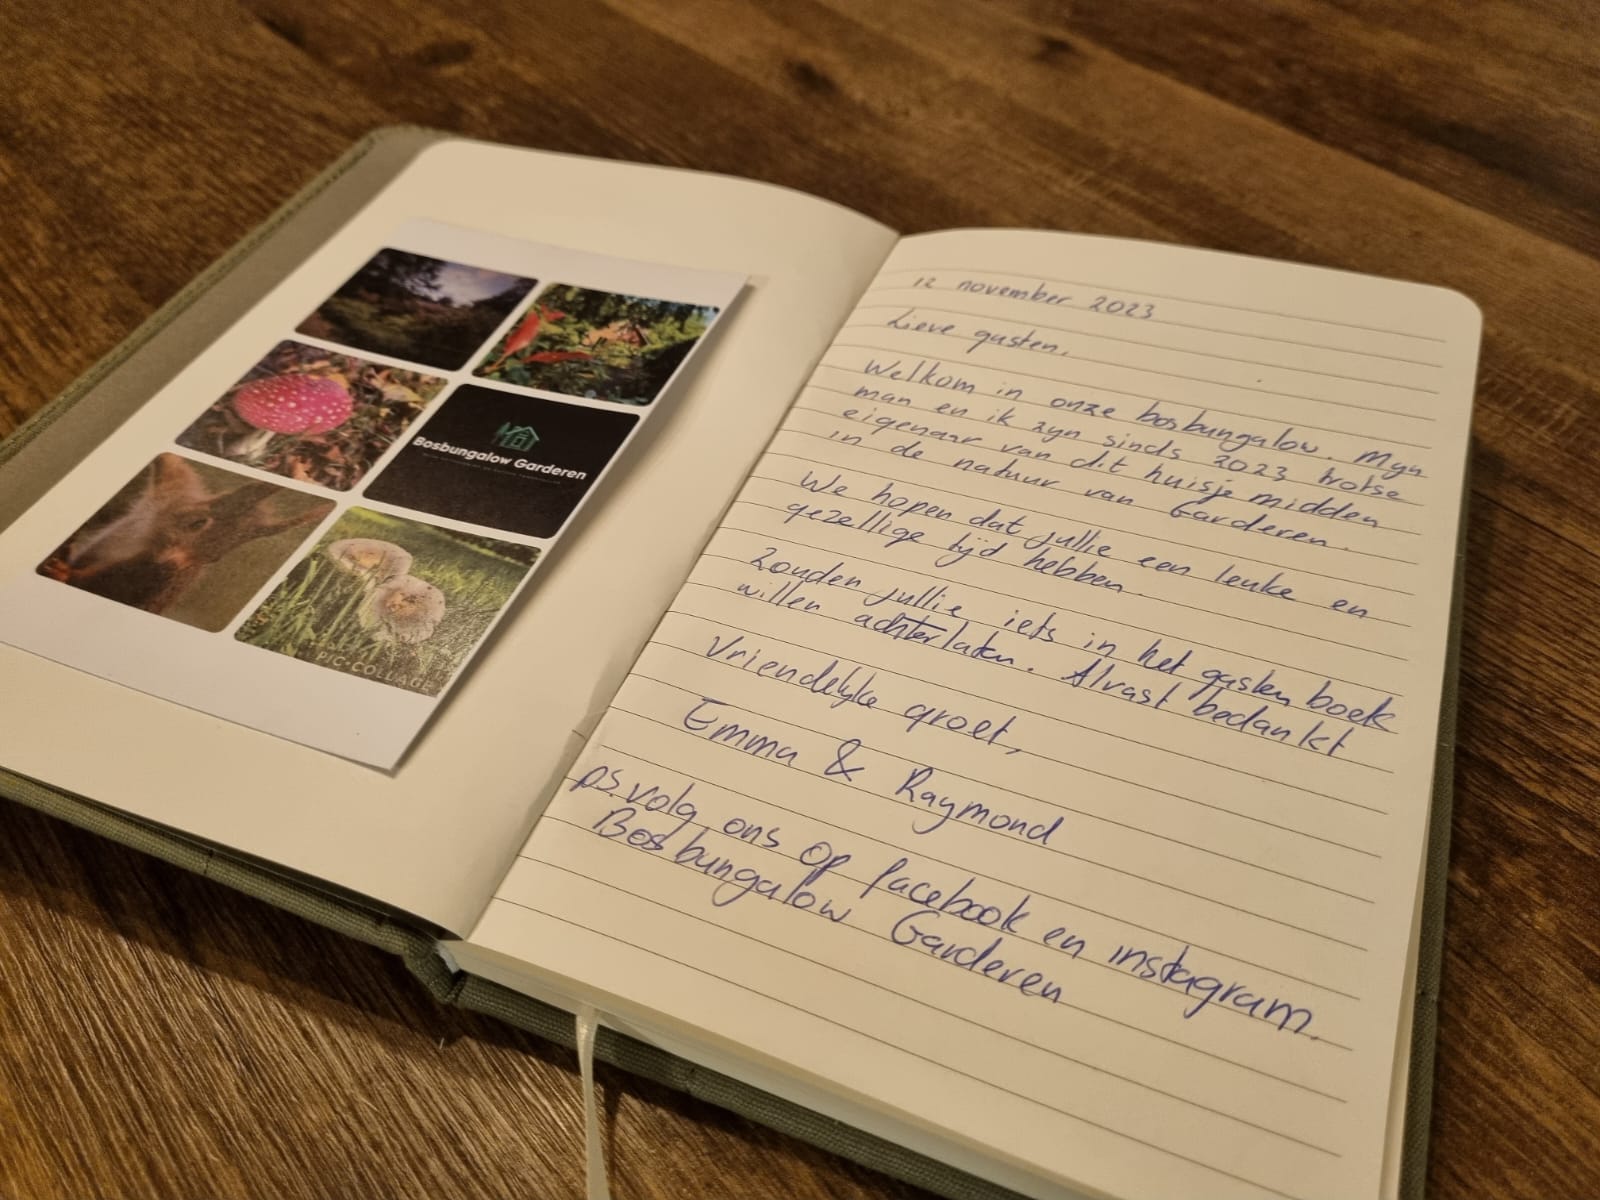 Bosbungalow Garderen
PIC•COLLAGE
12 november 2023
Lieve gasten,
Welkom in onze bosbungalow. Mijn
man en ik zijn sinds 2023 trotse
eigenaar van dit huisje midden
in de natuur van Garderen.
We hopen dat jullie een leuke en
gezellige tijd hebben.
Zouden jullie iets in het gasten boek
willen achterlaten. Alvast bedankt
Vriendelijke groet,
Emma & Raymond
ps. volg ons op facebook en instagram.
Bosbungalow Garderen